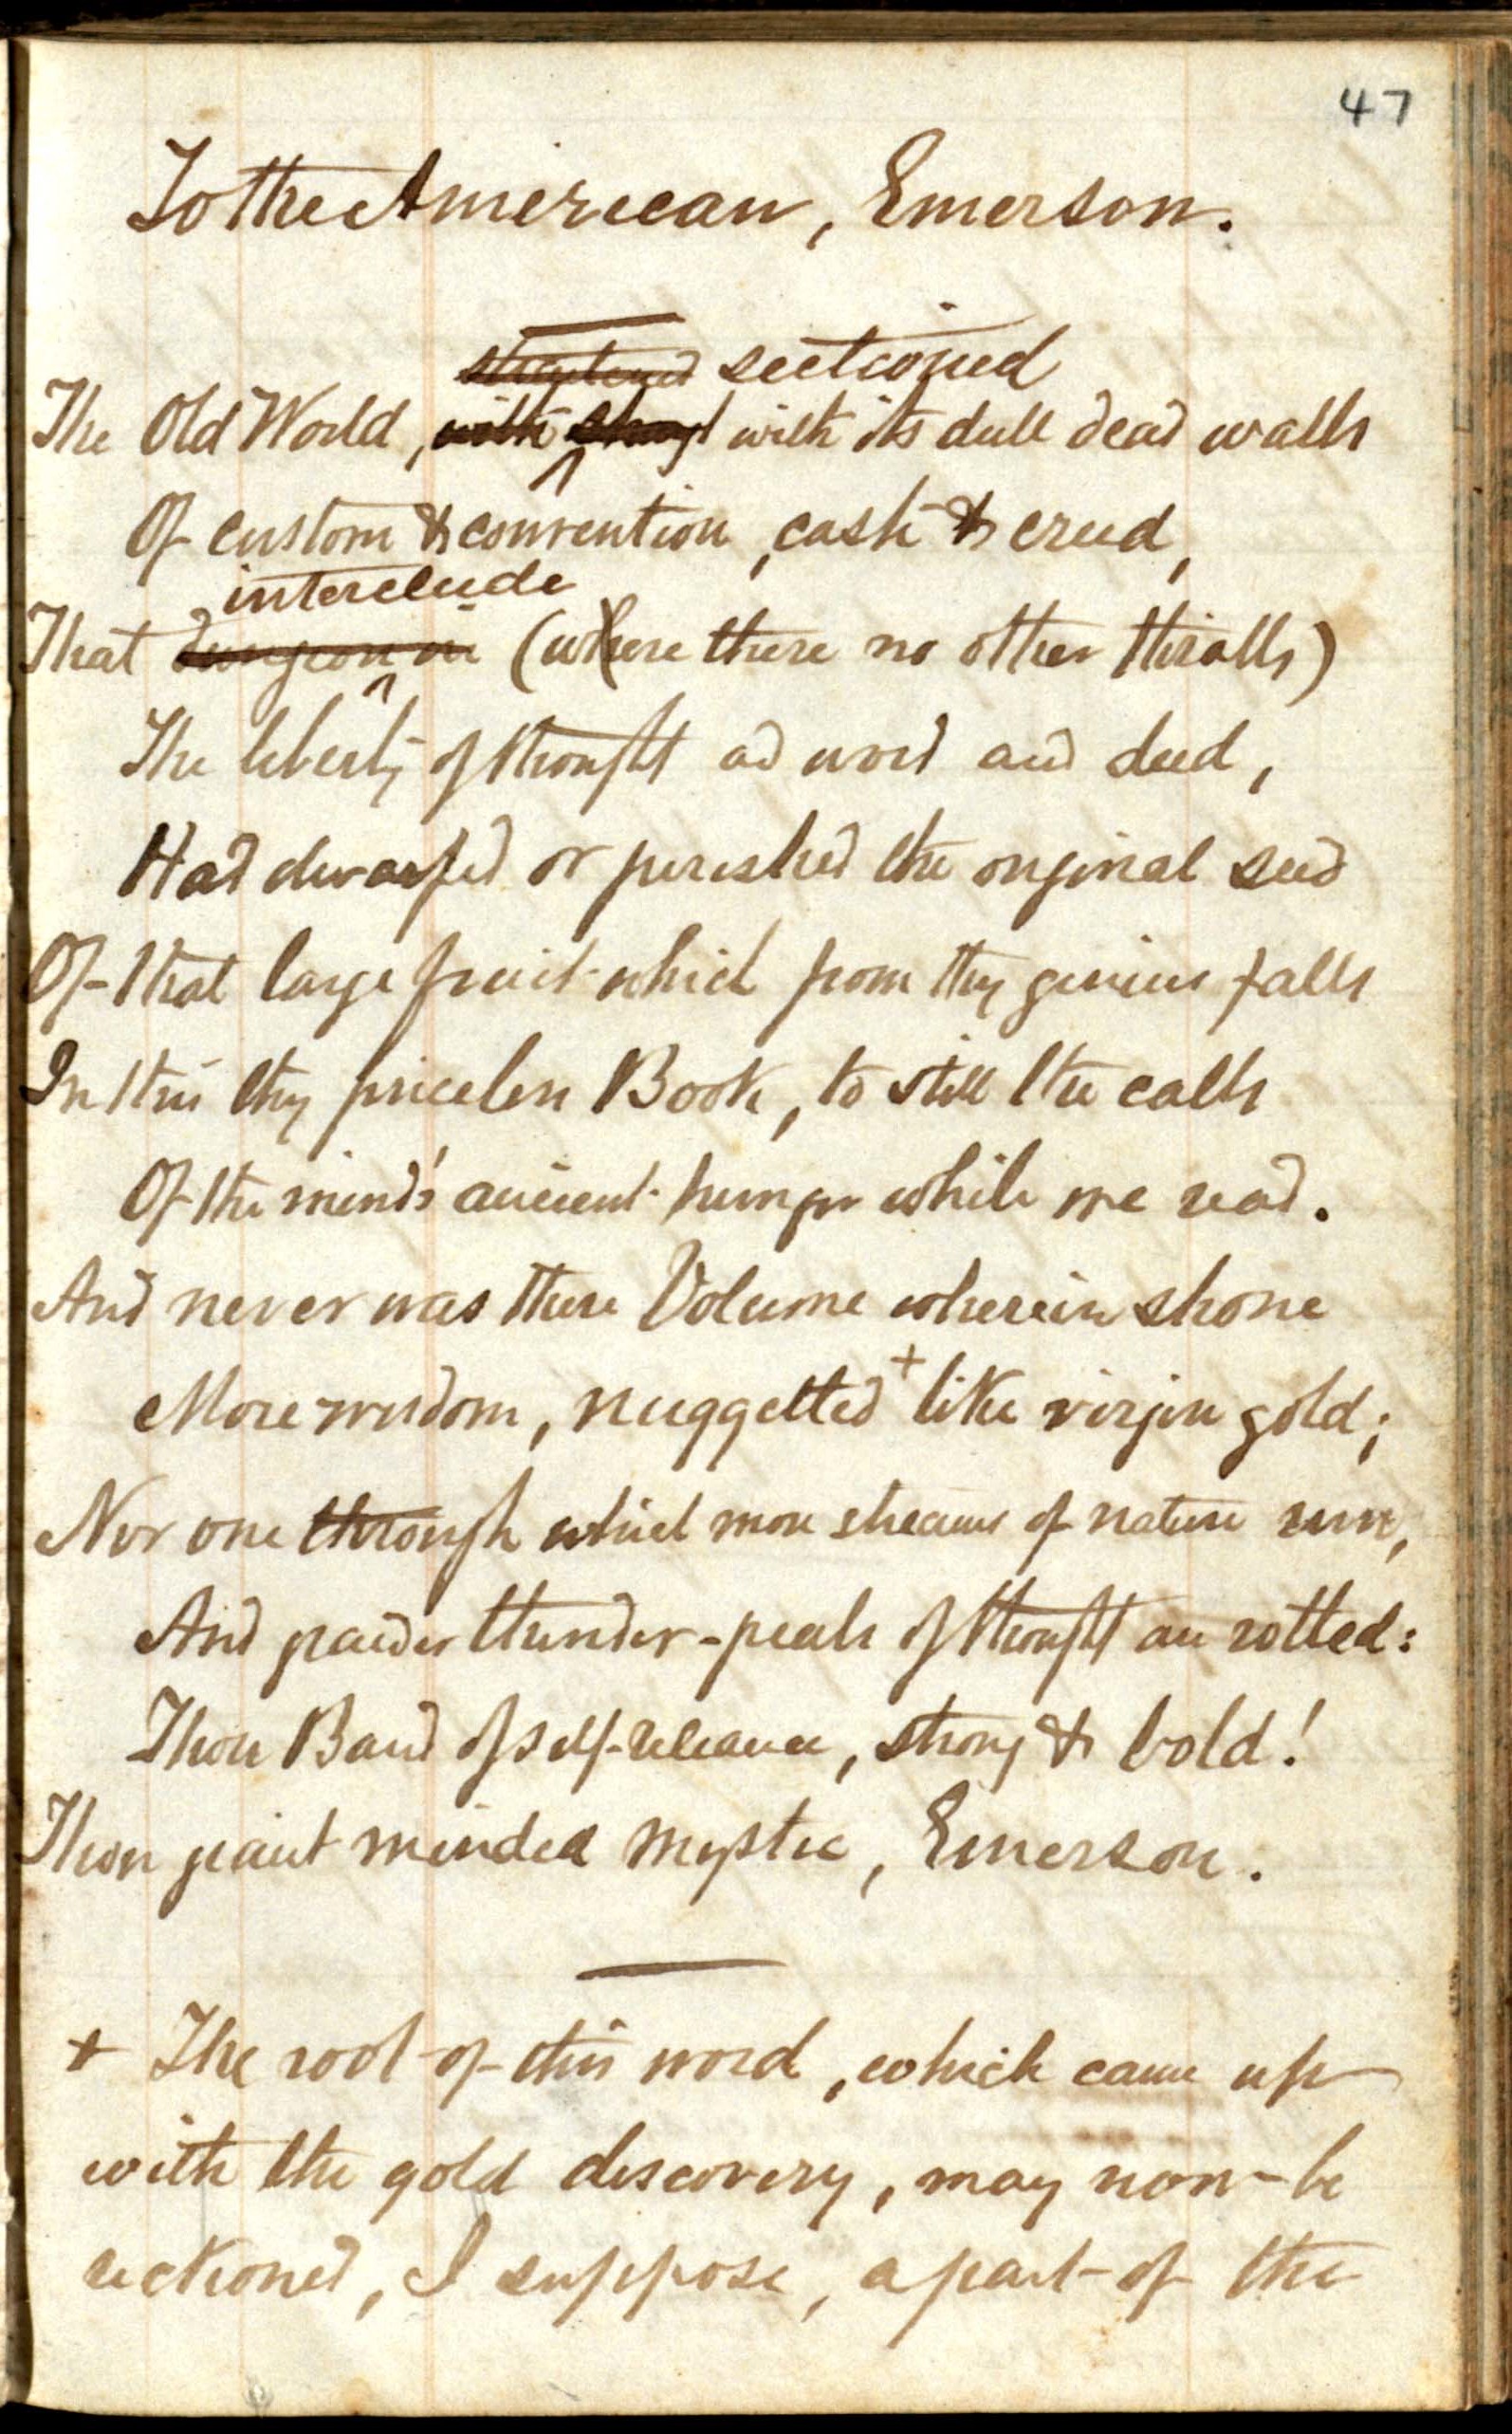 47
To the American, Emerson.
sectioned
The Old World, with its dull dead walls
Of custom & convention, cash & creed,
interclude
That dungeon in (where there no other thralls)
The liberty of thought ad word and deed,
Had dwarfed or perished the original seed
Of that large fruit which from thy genius falls
In this thy priceless Book, to still the calls
Of the mind's ancient hunger while we read.
And never was there Volume wherein shone
More wisdom, nuggetted + like virgin gold;
Nor one through which more streams of nature run,
And grander thunder-peals of thought are rolled:
Thou Bard of self-reliance, strong & bold!
Thou giant minded Mystic, Emerson.
+ The root of this word, which came up
with the gold discovery, may now be
reckoned, I suppose, a part of the